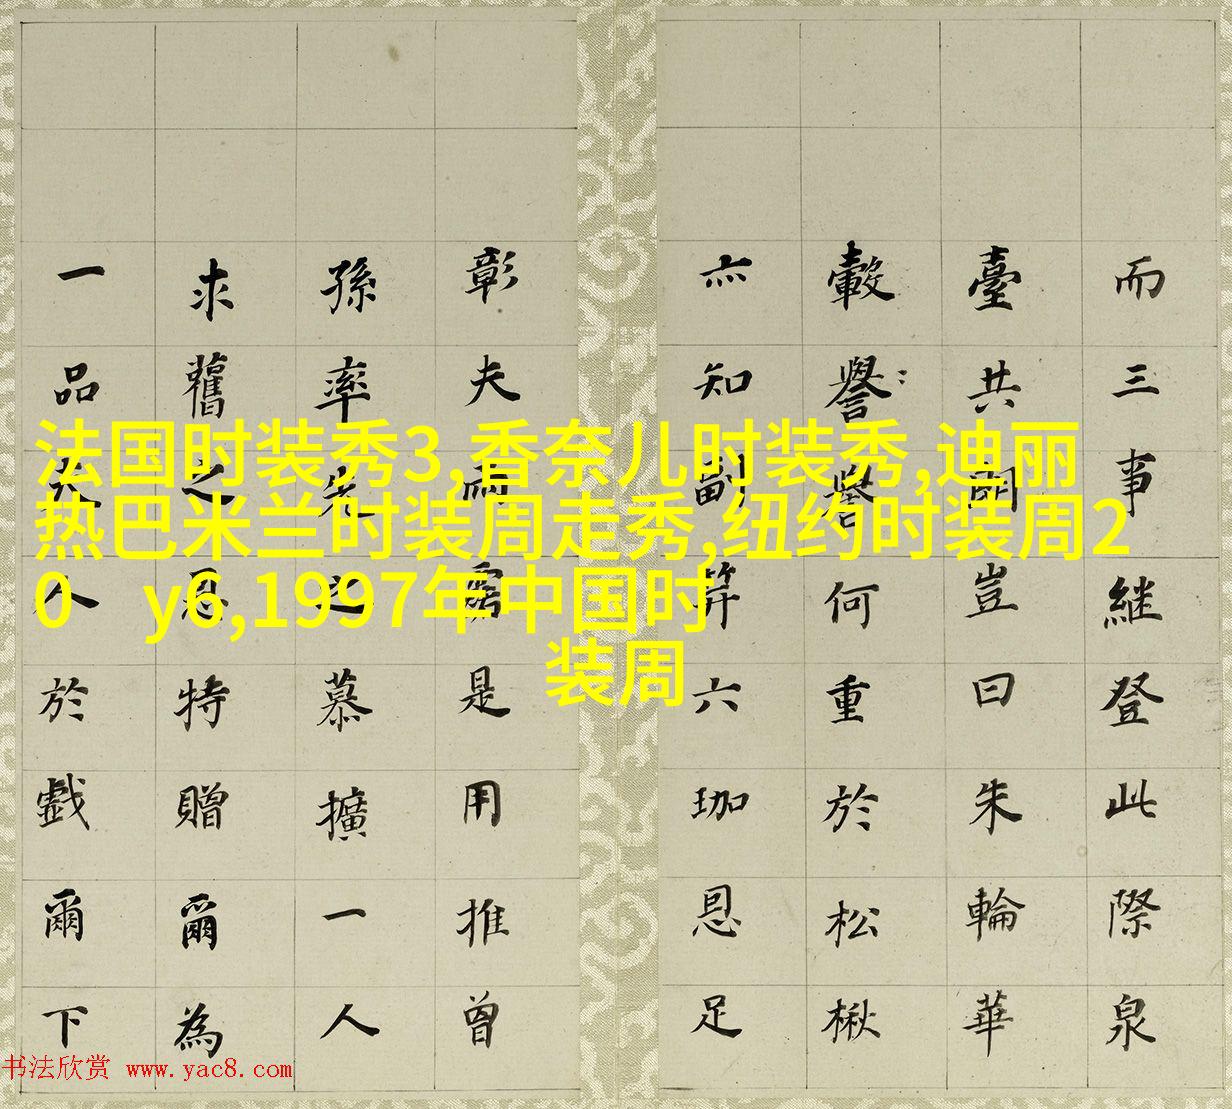 法国时装秀3,香奈儿时装秀,迪丽
热巴米兰时装周走秀,纽约时装周2
0 y6,1997年中国时
装周
而三事継登此際泉
臺共豈曰朱輪華
轂譽何重於松楸
亦知副笄六珈恩足
彰夫雨露是用推曾
孫率先之慕擴一人
求舊之恩特贈爾為
一品夫人於戲爾下
书法欣赏 www.yac8.com